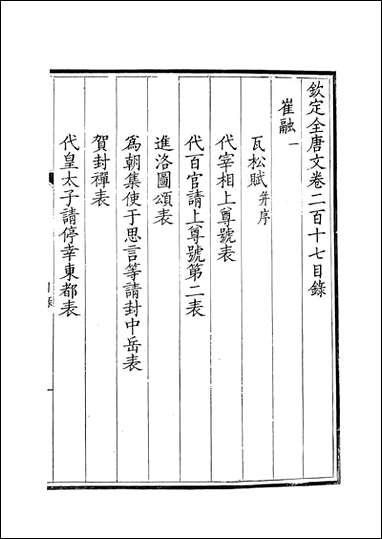 欽定全唐文卷二百十七目錄
崔融一
瓦松賦并序
代宰相上尊號表
代百官請上尊號第二表
進洛圖頌表
爲朝集使于思言等請封中岳表
賀封禪表
代皇太子請停幸東都表